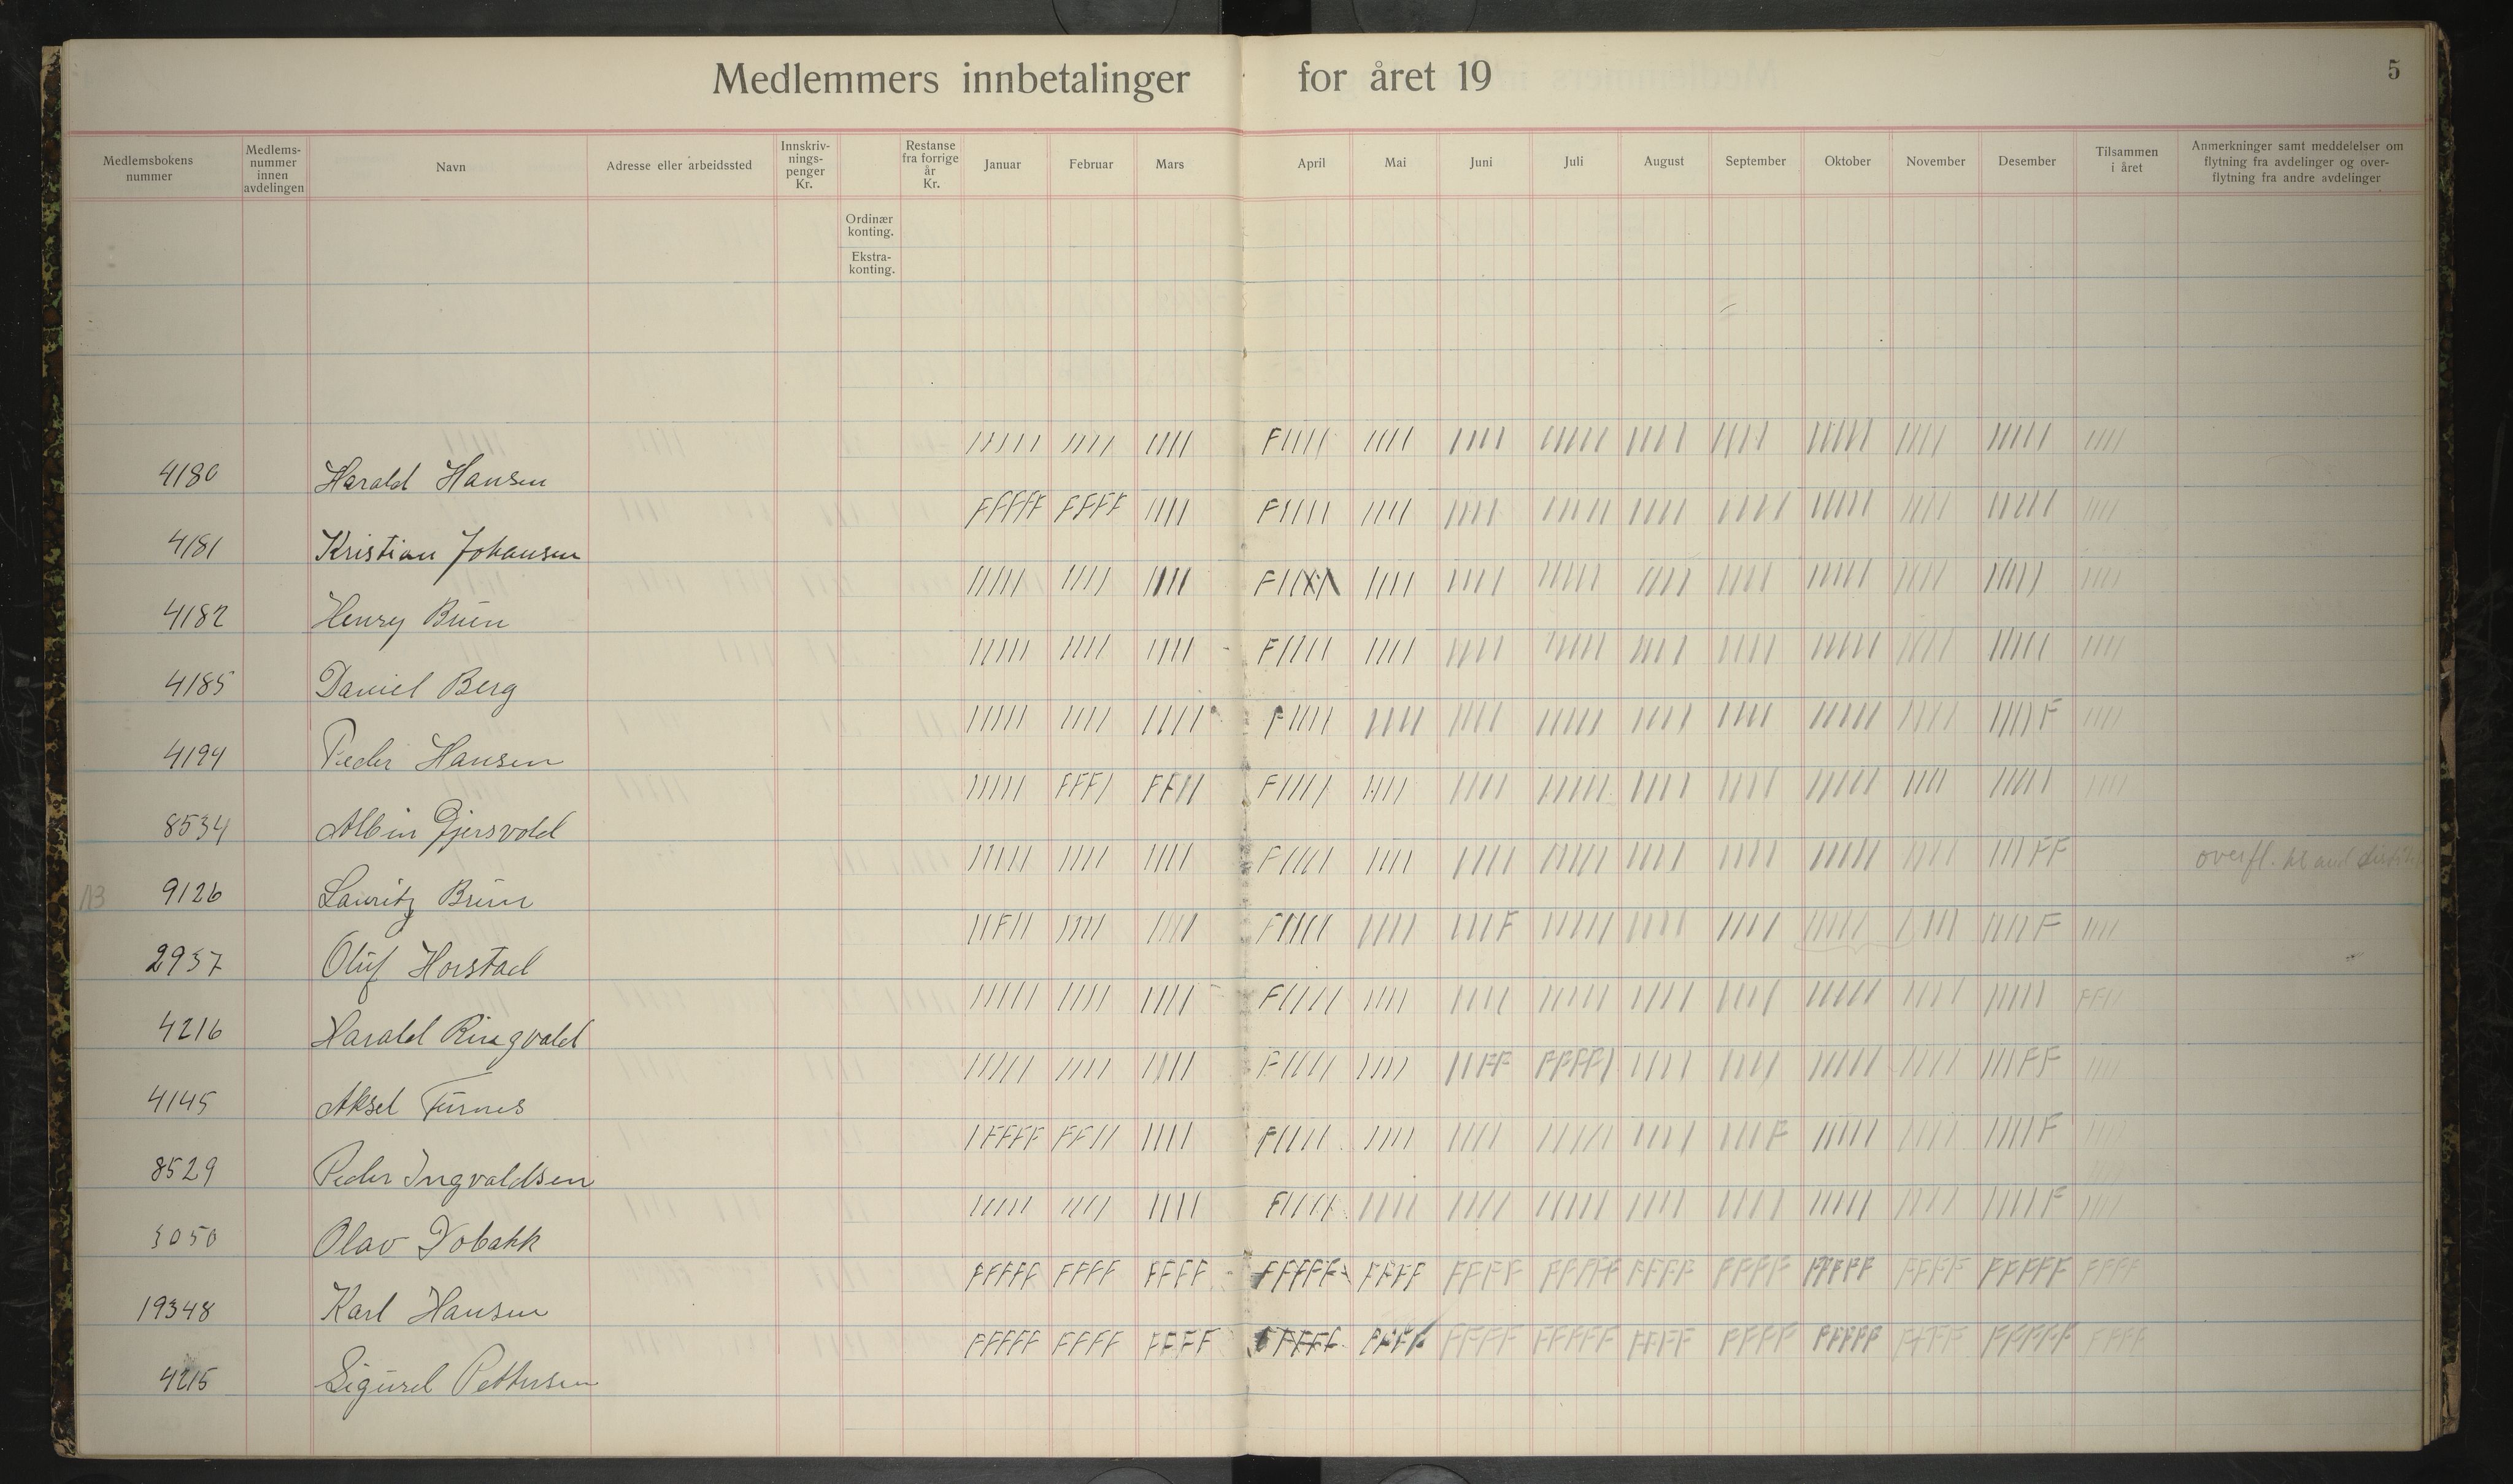 Medlemmers innbetalinger for året 19
5
Medlemsbokens nummer
Medlems-nummer innen avdelingen
Navn
Adresse eller arbeidssted
Innskriv-nings-penger Kr.
Restanse fra forrige år Kr.
Januar
Februar
Mars
April
Mai
Juni
Juli
August
September
Oktober
November
Desember
Tilsammen i året
Anmerkninger samt meddelelser om flytning fra avdelinger og over-flytning fra andre avdelinger
Ordinær konting.
Ekstra-konting.
4180 Harald Hansen ///// //// //// F//// //// //// ///// //// //// ///// //// ///// ////
4181 Kristian Johansen FFFFF FFFF //// F//// //// //// ///// //// //// ///// //// ///// ////
4182 Henry Brün ///// //// //// //// //// ///// //// //// ///// //// ///// ////
4185 Daniel Berg ///// //// //// F//// //// //// ///// //// //// ///// //// ///// ////
4194 Peder Hansen ///// //// //// F//// //// //// ///// //// //// ///// //// ////F ////
8534 Albin Gjersvold ///// FFF/ FF// F//// //// //// ///// //// //// ///// //// ///// ////
9126 Lauritz Brün ///// //// //// F//// //// //// ///// //// //// ///// //// ///FF overfl. til
2937 Oluf Horstad //F// //// //// F//// //// ///F ///// //// //// ///// //// ////F ////
4216 Harald Ringvald ///// //// //// F//// //// //// ///// //// //// ///// //// ///// FF//
4145 Aksel Fürnes ///// //// //// F//// //// //FF FFFF/ //// //// ///// //// ///FF ////
8529 Peder Ingvaldsen /FFFF FF// //// F//// //// //// ///// //// ///F ///// //// ////F ////
3050 Olav Dobakk ///// //// //// F//// //// //// ///// //// //// ///// //// ////F ////
19348 Karl Hansen FFFFF FFFF FFFF FFFFF FFFF FFFF FFFFF FFFF FFFF FFFFF FFFF FFFFF FFFF
4215 Sigurd Pettersen FFFFF FFFF FFFF FFFFF FFFF FFFF FFFFF FFFF FFFF FFFFF FFFF FFFFF FFFF